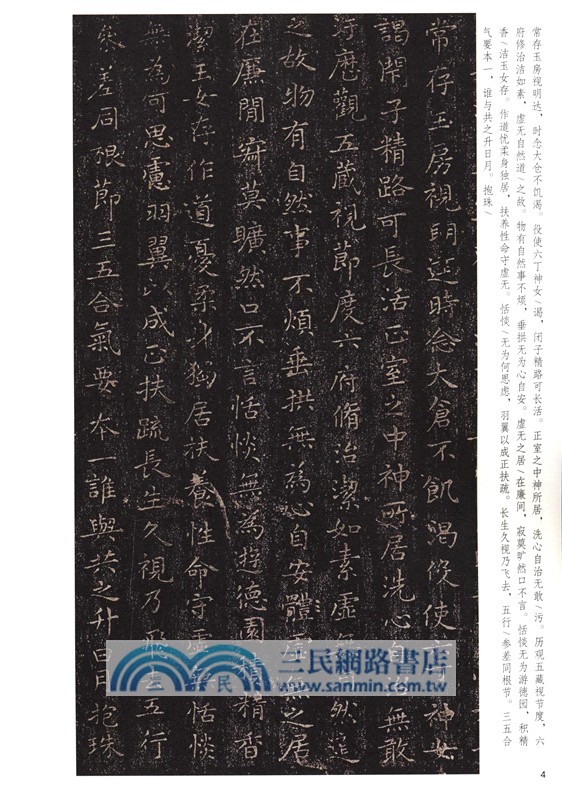 常存玉房视明达，时念大仓不饥渴。役使六丁神女\谒，闭子精路可长活。正室之中神所居，洗心自治无敢\污。历观五藏视节度，六
府修治洁如素，虚无自然道\之故。物有自然事不烦，垂拱无为心自安。虚无之居\在廉间，寂莫旷然口不言。恬惔无为游德园，积精
香\洁玉女存。作道忧柔身独居，扶养性命守虚无。恬惔\无为何思虑，羽翼以成正扶疏。长生久视乃飞去，五行\参差同根节。三五合
气要本一，谁与共之升日月。抱珠\
常存玉房視明達時念大倉不飢渴役使六丁神女
謁閉子精路可長活正室之中神所居洗心自治無敢
汙歷觀五藏視節度六府脩治潔如素虛無自然道
之故物有自然事不煩垂拱無為心自安體虛無之居
在廉間寂莫曠然口不言恬惔無為遊德園積精香
潔玉女存作道憂柔身獨居扶養性命守虛無恬惔
無為何思慮羽翼以成正扶疏長生久視乃飛去五行
參差同根節三五合氣要本一誰與共之升日月抱珠
三民網路書店
www.sanmin.com.tw
4